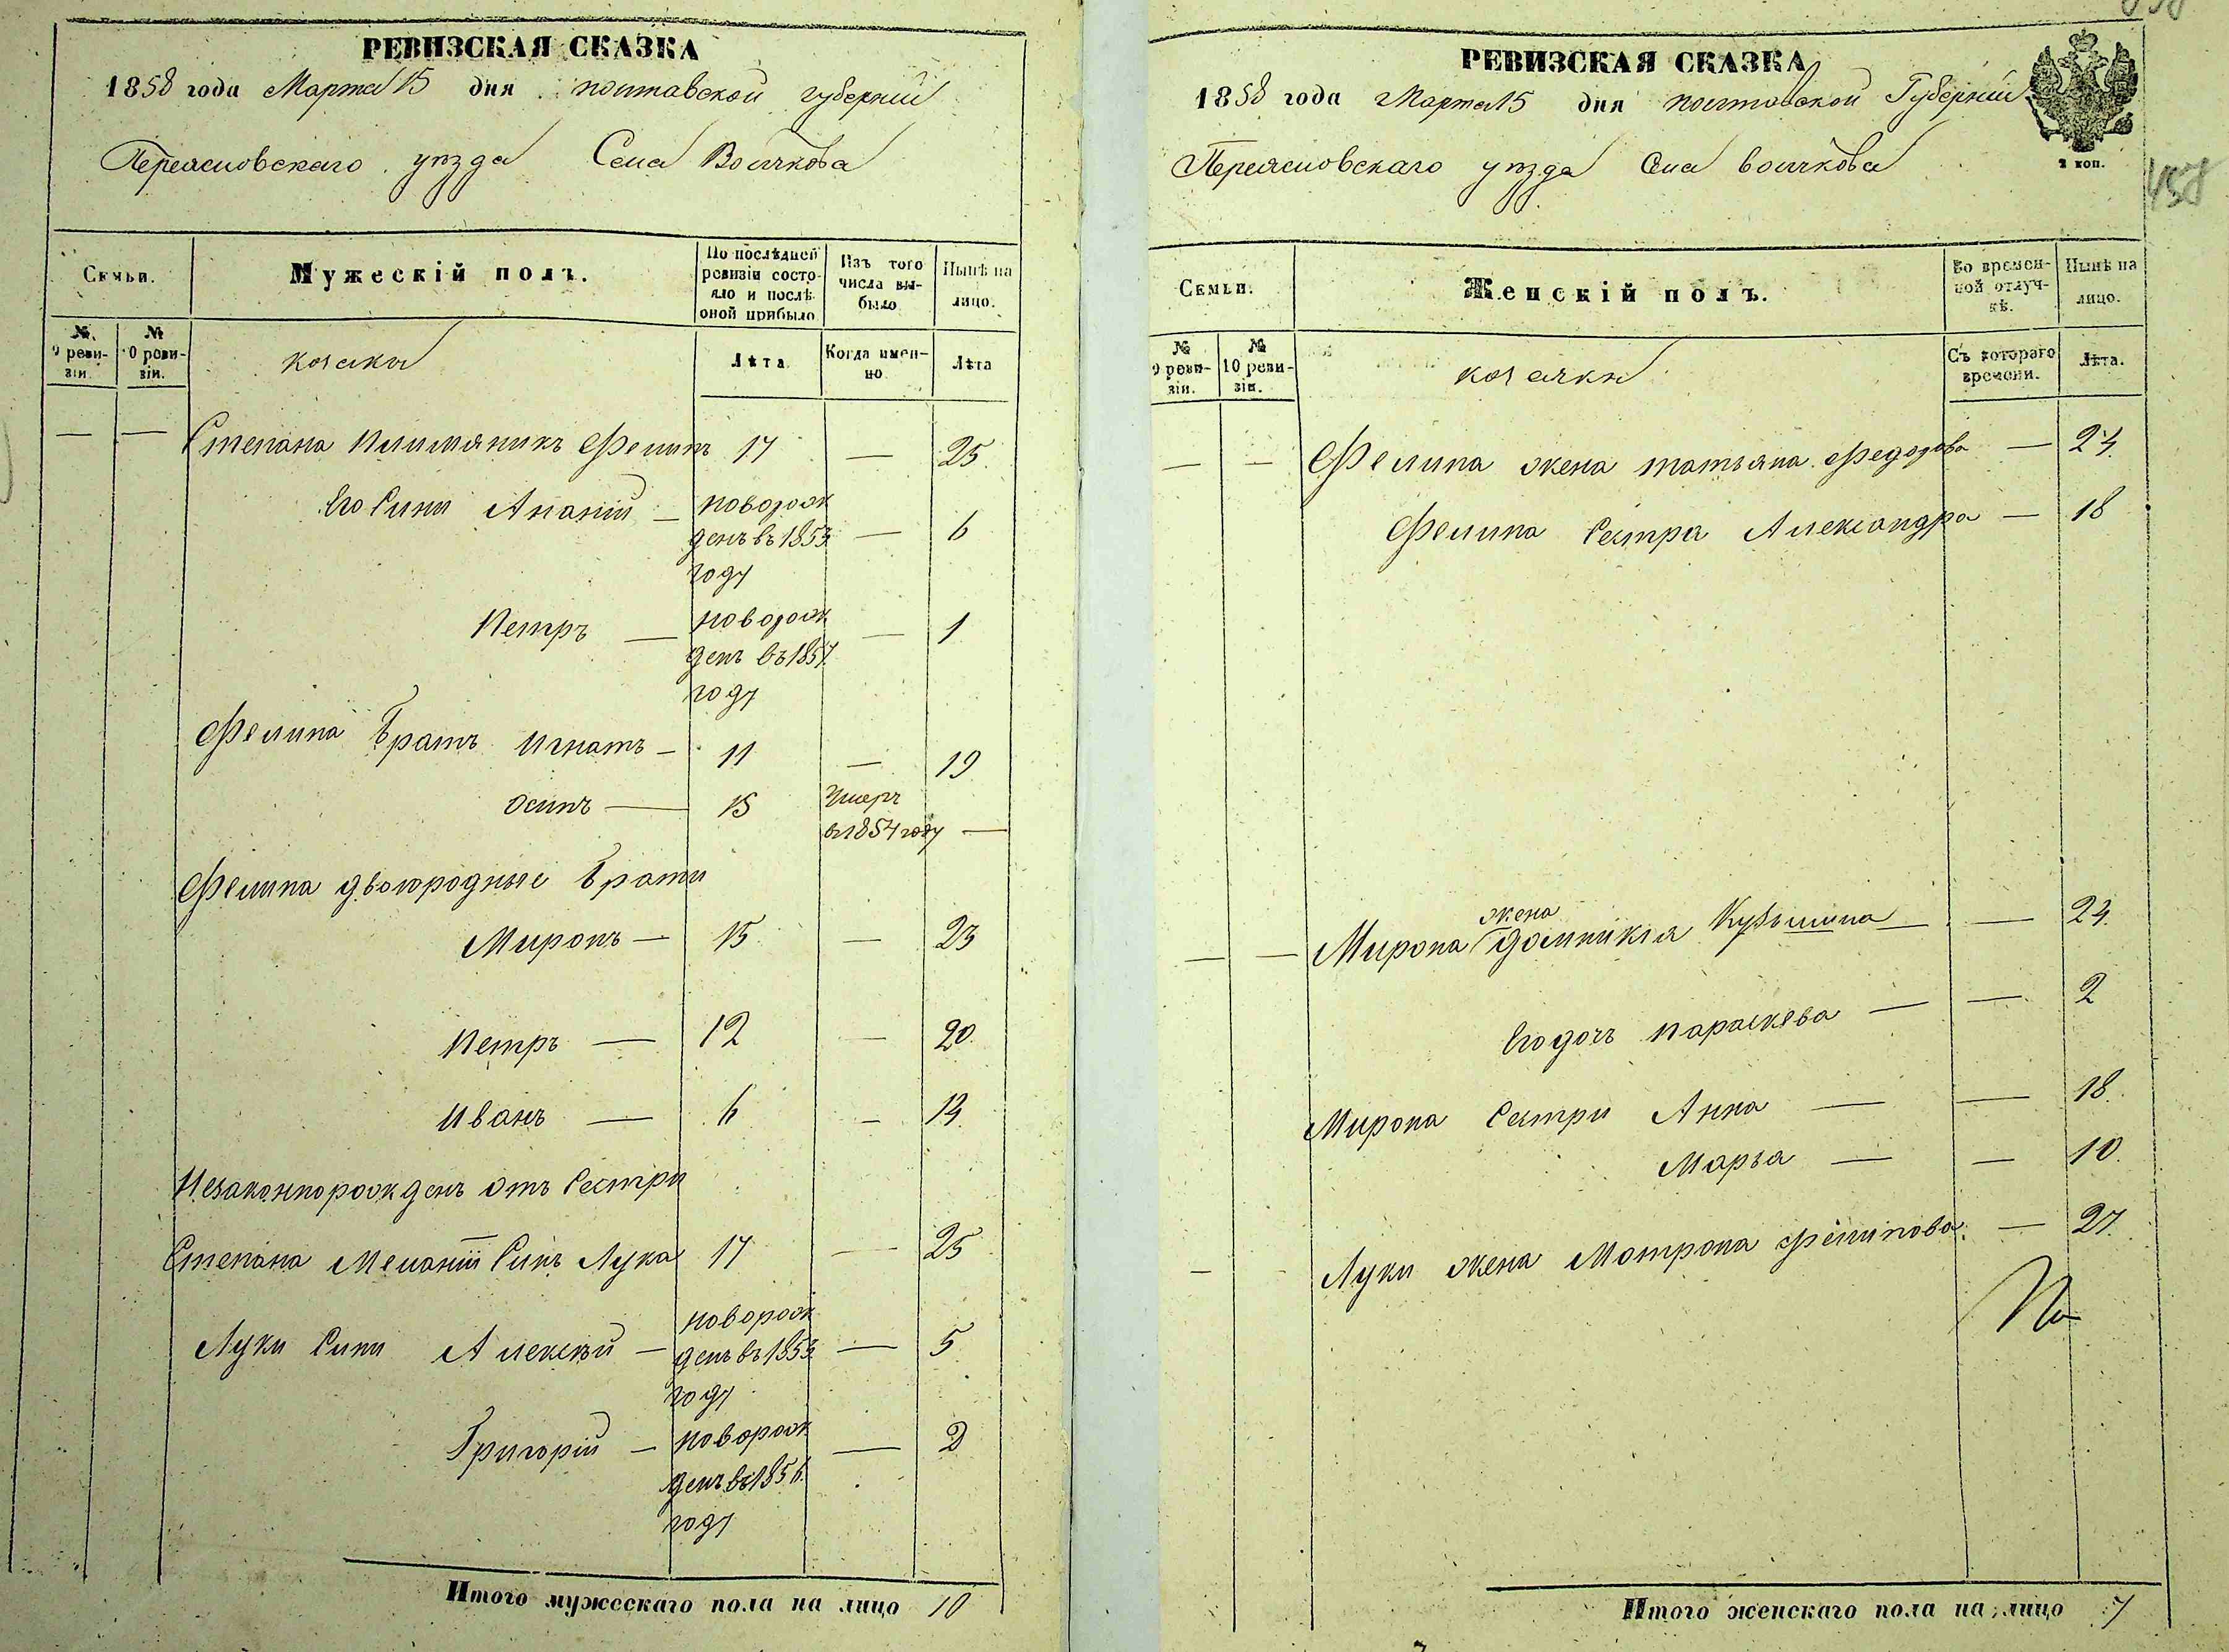 РЕВИЗСКАЯ СКАЗКА
1858 года Марта 15 дня полтавской губерніи
Переяславскаго уѣзда Села Волчкова
Семьи.
Мужескій полъ.
По послѣдней ревизіи состояло и послѣ оной прибыло
Изъ того числа выбыло
Нынѣ на лицо.
№ 9 ревизіи.
№ 10 ревизіи.
козаки
Лѣта
Когда именно
Лѣта
— — Степана племяникъ Фелипъ 17 — 25.
Его Сини Ананій — новорожденъ въ 1853 году — 6
Петръ — новорожденъ въ 1857 году — 1
Фелипа братъ Игнатъ — 11 — 19
Осипъ — 15 Умеръ в 1854 году —
Фелипа двоюродные брати
Миронъ — 15 — 23
Петръ — 12 — 20.
Иванъ — 6 — 14.
Незаконнорожденъ отъ Сестри
Степана Меланіи Синъ Лука 17 — 25
Луки Сини Алексѣй — новорожденъ въ 1853 году — 5
Григорій — новорожденъ въ 1856 году — 2
Итого мужескаго пола на лицо 10
РЕВИЗСКАЯ СКАЗКА
1858 года Марта 15 дня полтавской Губерніи
Переяславскаго уѣзда Села Волчкова
2 коп.
458
Семьи.
Женскій полъ.
Во временной отлучкѣ.
Нынѣ на лицо.
№ 9 ревизіи.
№ 10 ревизіи.
козачки
Съ котораго времени.
Лѣта.
— — Фелипа жена татьяна Федорова — 24.
Фелипа Сестра Александра — 18
— — Мирона жена Домникія Кузьмина — — 24.
Его дочъ параскева — — 2
Мирона Сестри Анна — — 18.
Марѣа — — 10.
— Луки жена Мотрона Фелипова — 27.
Итого женскаго пола на лицо 7